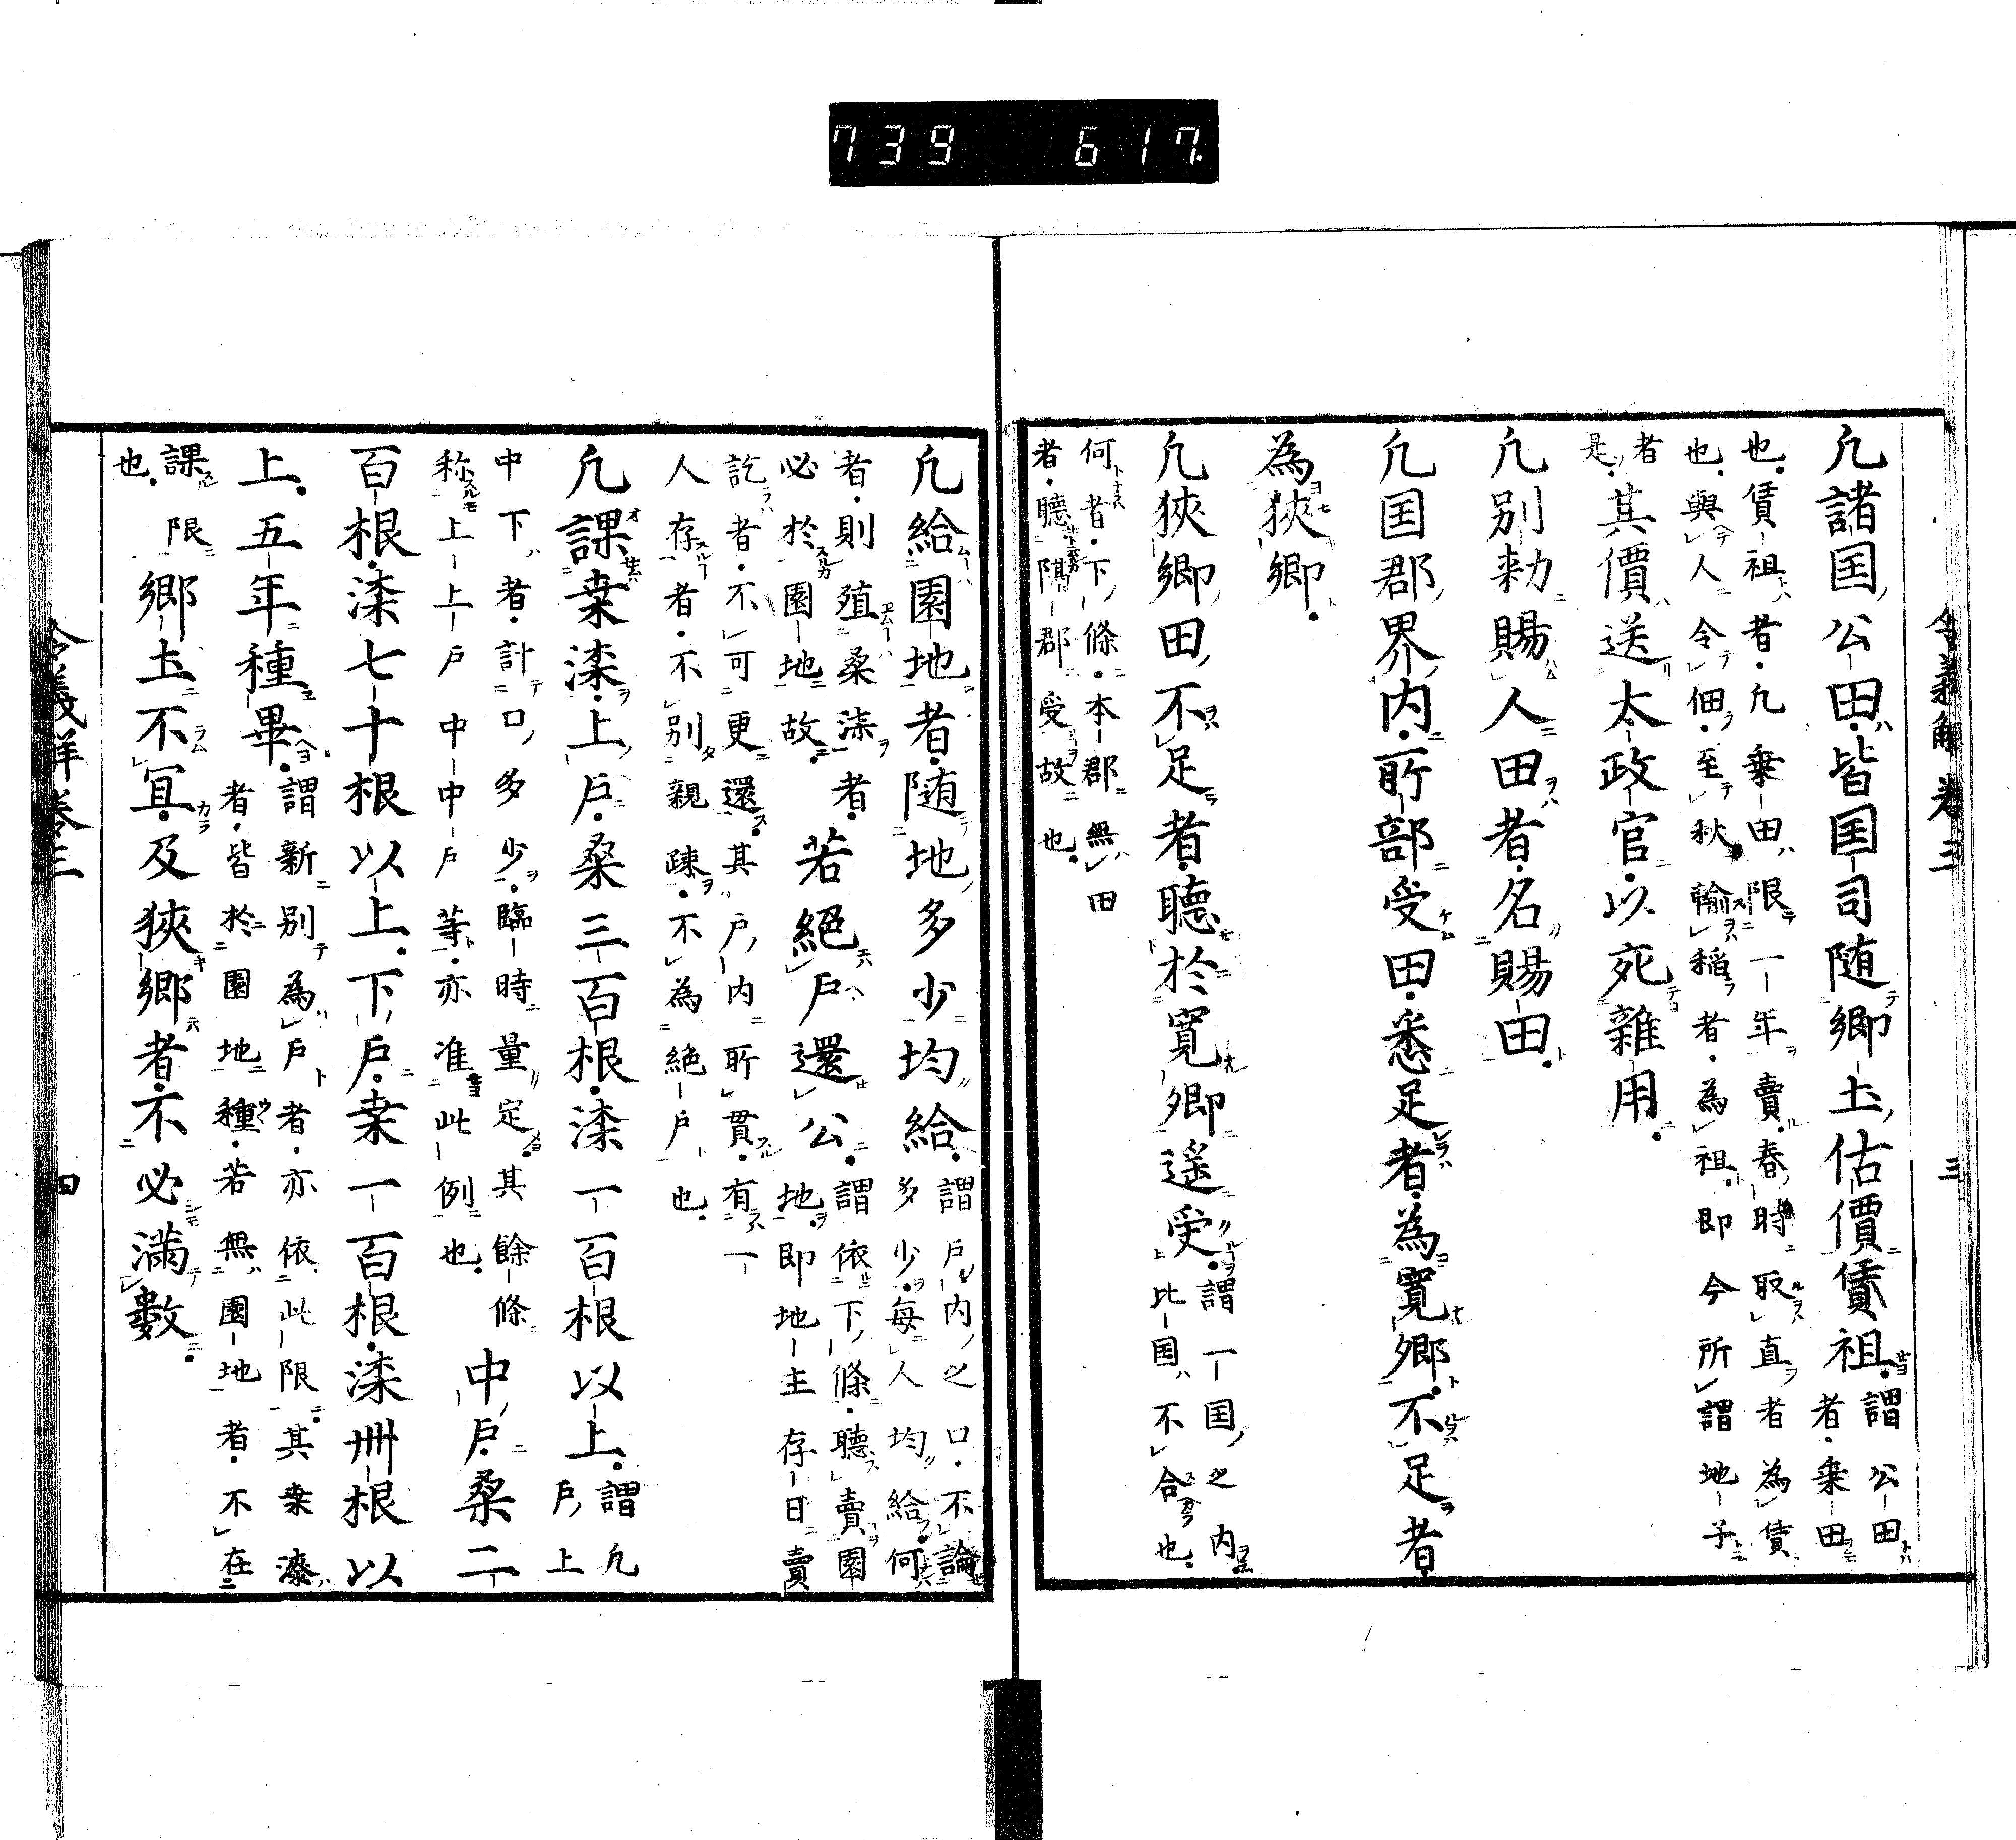 739 617.
令義解卷三 三
凢諸国公田皆国司随郷土估價賃租謂公田
者乗田
也賃租者凢乗田限一年賣春時取直者為賃
也與人令佃至秋輸稲者為租即今所謂地子
者
是其價送太政官以死雜用
凢別勅賜人田者名賜田
凢国郡界内所部受田悉足者為寛郷不足者
為狹郷
凢狹郷田不足者聽於寛郷遥受謂一国之内
比国不合也
何者下條本郡無田
者聽隔郡受故也
凢給園地者随地多少均給謂戸内之口不論
多少每人均給何
者則殖桑漆者若絕戸還公謂依下條聽賣園
地即地主存日賣
必於園地故
訖者不可更還其戸内所貫有一
人存者不別親踈不為絕戸也
凢課桒漆上戸桑三百根漆一百根以上謂凢
戸上
中下者計口多少臨時量定其餘條
称上上戸中中戸等亦准此例也中戸桑二
百根漆七十根以上下戸桒一百根漆卌根以
上五年種畢謂新別為戸者亦依此限其桒漆
者皆於園地種若無園地者不在
課限
也郷土不冝及狹郷者不必満數
令義解卷三 四